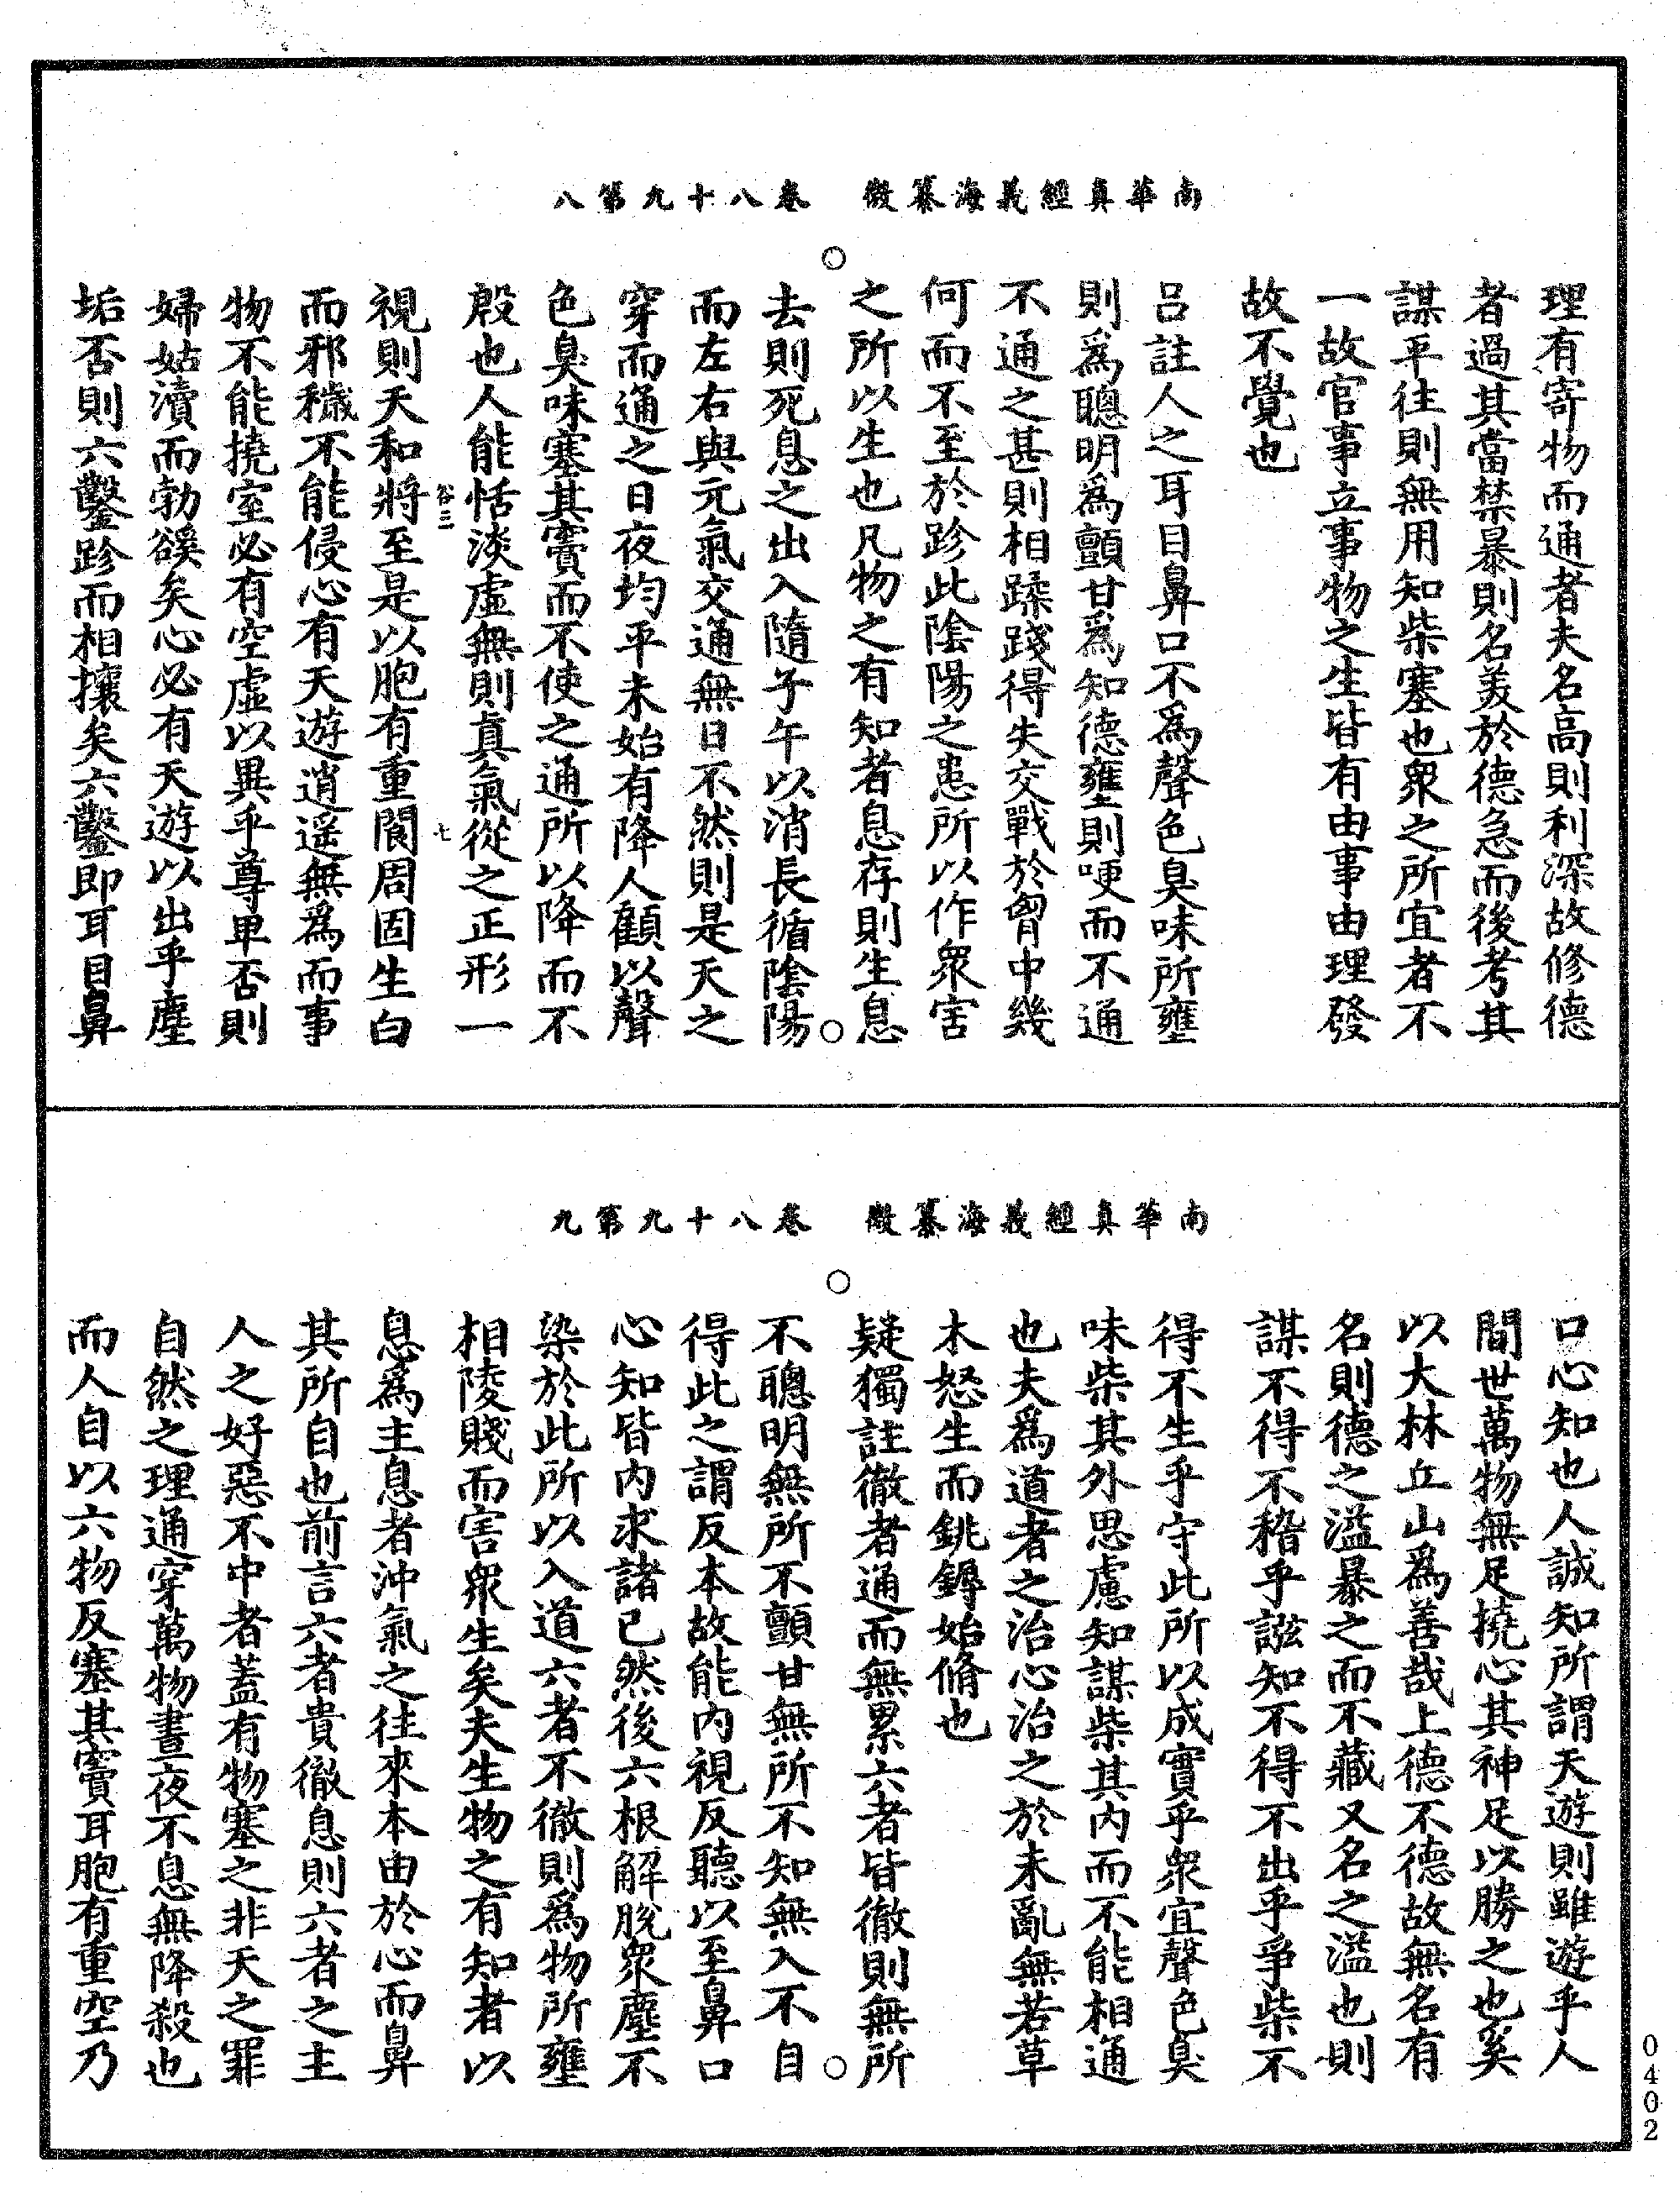 南華真經義海纂微　卷八十九第八
理有寄物而通者夫名高則利深故修德
者過其當禁暴則名美於德急而後考其
謀平往則無用知柴塞也衆之所宜者不
一故官事立事物之生皆有由事由理發
故不覺也
呂註人之耳目鼻口不爲聲色臭味所壅
則爲聰明爲顫甘爲知德壅則哽而不通
不通之甚則相蹂踐得失交戰於胷中幾
何而不至於跈此陰陽之患所以作衆害
之所以生也凡物之有知者息存則生息
去則死息之出入隨子午以消長循陰陽
而左右與元氣交通無日不然則是天之
穿而通之日夜均平未始有降人顧以聲
色臭味塞其竇而不使之通所以降而不
殷也人能恬淡虛無則真氣從之正形一
谷三　七
視則天和將至是以胞有重閬周固生白
而邪穢不能侵心有天遊逍遥無爲而事
物不能撓室必有空虛以異乎尊卑否則
婦姑瀆而勃豀矣心必有天遊以出乎塵
垢否則六鑿跈而相攘矣六鑿即耳目鼻
南華真經義海纂微　卷八十九第九
口心知也人誠知所謂天遊則雖遊乎人
間世萬物無足撓心其神足以勝之也奚
以大林丘山爲善哉上德不德故無名有
名則德之溢暴之而不藏又名之溢也則
謀不得不稽乎誸知不得不出乎爭柴不
得不生乎守此所以成實乎衆宜聲色臭
味柴其外思慮知謀柴其内而不能相通
也夫爲道者之治心治之於未亂無若草
木怒生而銚鎒始脩也
疑獨註徹者通而無累六者皆徹則無所
不聰明無所不顫甘無所不知無入不自
得此之謂反本故能内視反聽以至鼻口
心知皆内求諸已然後六根解脫衆塵不
染於此所以入道六者不徹則爲物所壅
相陵賤而害衆生矣夫生物之有知者以
息爲主息者沖氣之往來本由於心而鼻
其所自也前言六者貴徹息則六者之主
人之好惡不中者蓋有物塞之非天之罪
自然之理通穿萬物晝夜不息無降殺也
而人自以六物反塞其竇耳胞有重空乃
0402